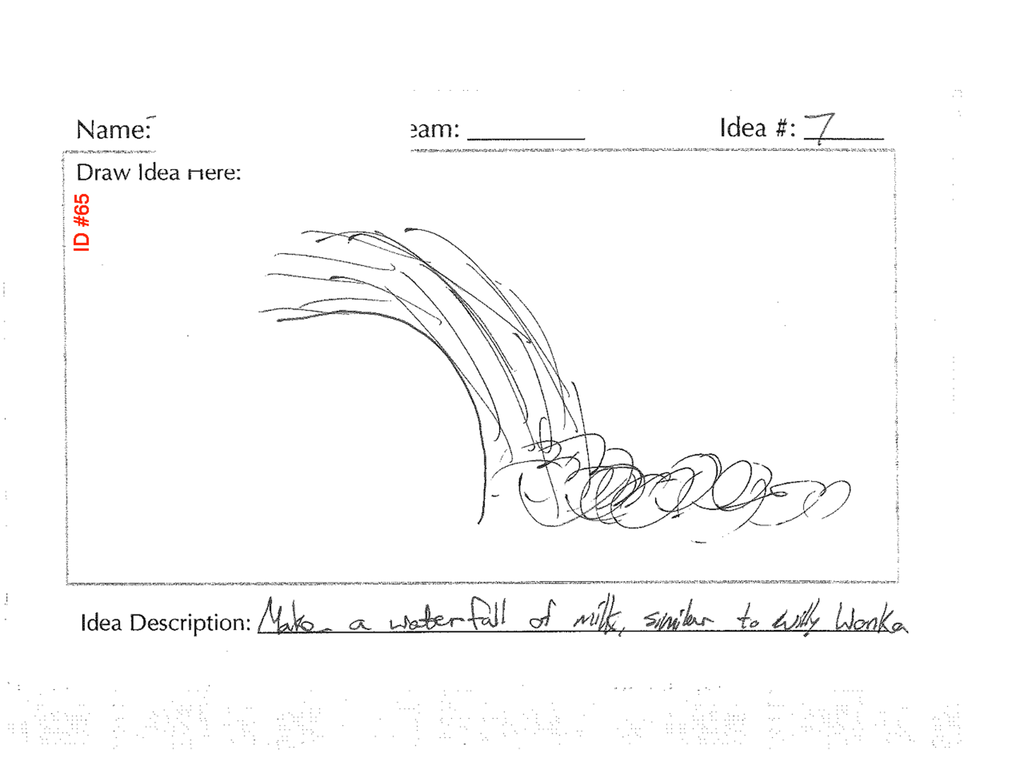 Name: eam: Idea #: 7
Draw Idea Here:
ID #65
Idea Description: Make a waterfall of milk, similar to Willy Wonka